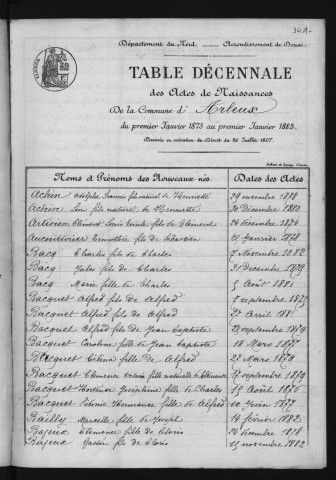 341
Département du Nord. Arrondissement de Douai.
TABLE DÉCENNALE
des Actes de Naissances
De la Commune d'Arleux
du premier Janvier 1873 au premier Janvier 1883.
Dressée en exécution du Décret du 20 Juillet 1807.
Noms et Prénoms des Nouveaux nés Dates des Actes
Achin Adolphe François fils naturel de Henriette 29 novembre 1878
Léon fils naturel de Henriette 30 Décembre 1880
Louis fils de Clément 26 Décembre 1874
fils de Sébastien Janvier 1878
Bacq Charles fils de Charles 7 Novembre 1882
Bacq Jules fils de Charles 31 Décembre 1879
Bacq Marie fille de Charles 5 Août 1881
Bacquet Alfred fils de Alfred septembre 1875
Bacquet Alfred fils de Alfred 27 Avril 1881
Bacquet Alfred fils de Jean Baptiste septembre 1879
Bacquet Caroline fille de Jean Baptiste 18 Mars 1877
Bacquet fille de Alfred 28 Mars 1879
Bacquet Clémence fille naturelle de Clémence 17 septembre 1879
Bacquet Hortense Joséphine fille de Charles 18 Août 1876
Bacquet Hermance fille de Alfred 10 Juin 1877
Bailly Marcelle fille de Joseph 14 février 1882
Bajeux Clémence fille de Cloris Décembre 1878
Bajeux Gaston fils de Cloris 15 novembre 1882